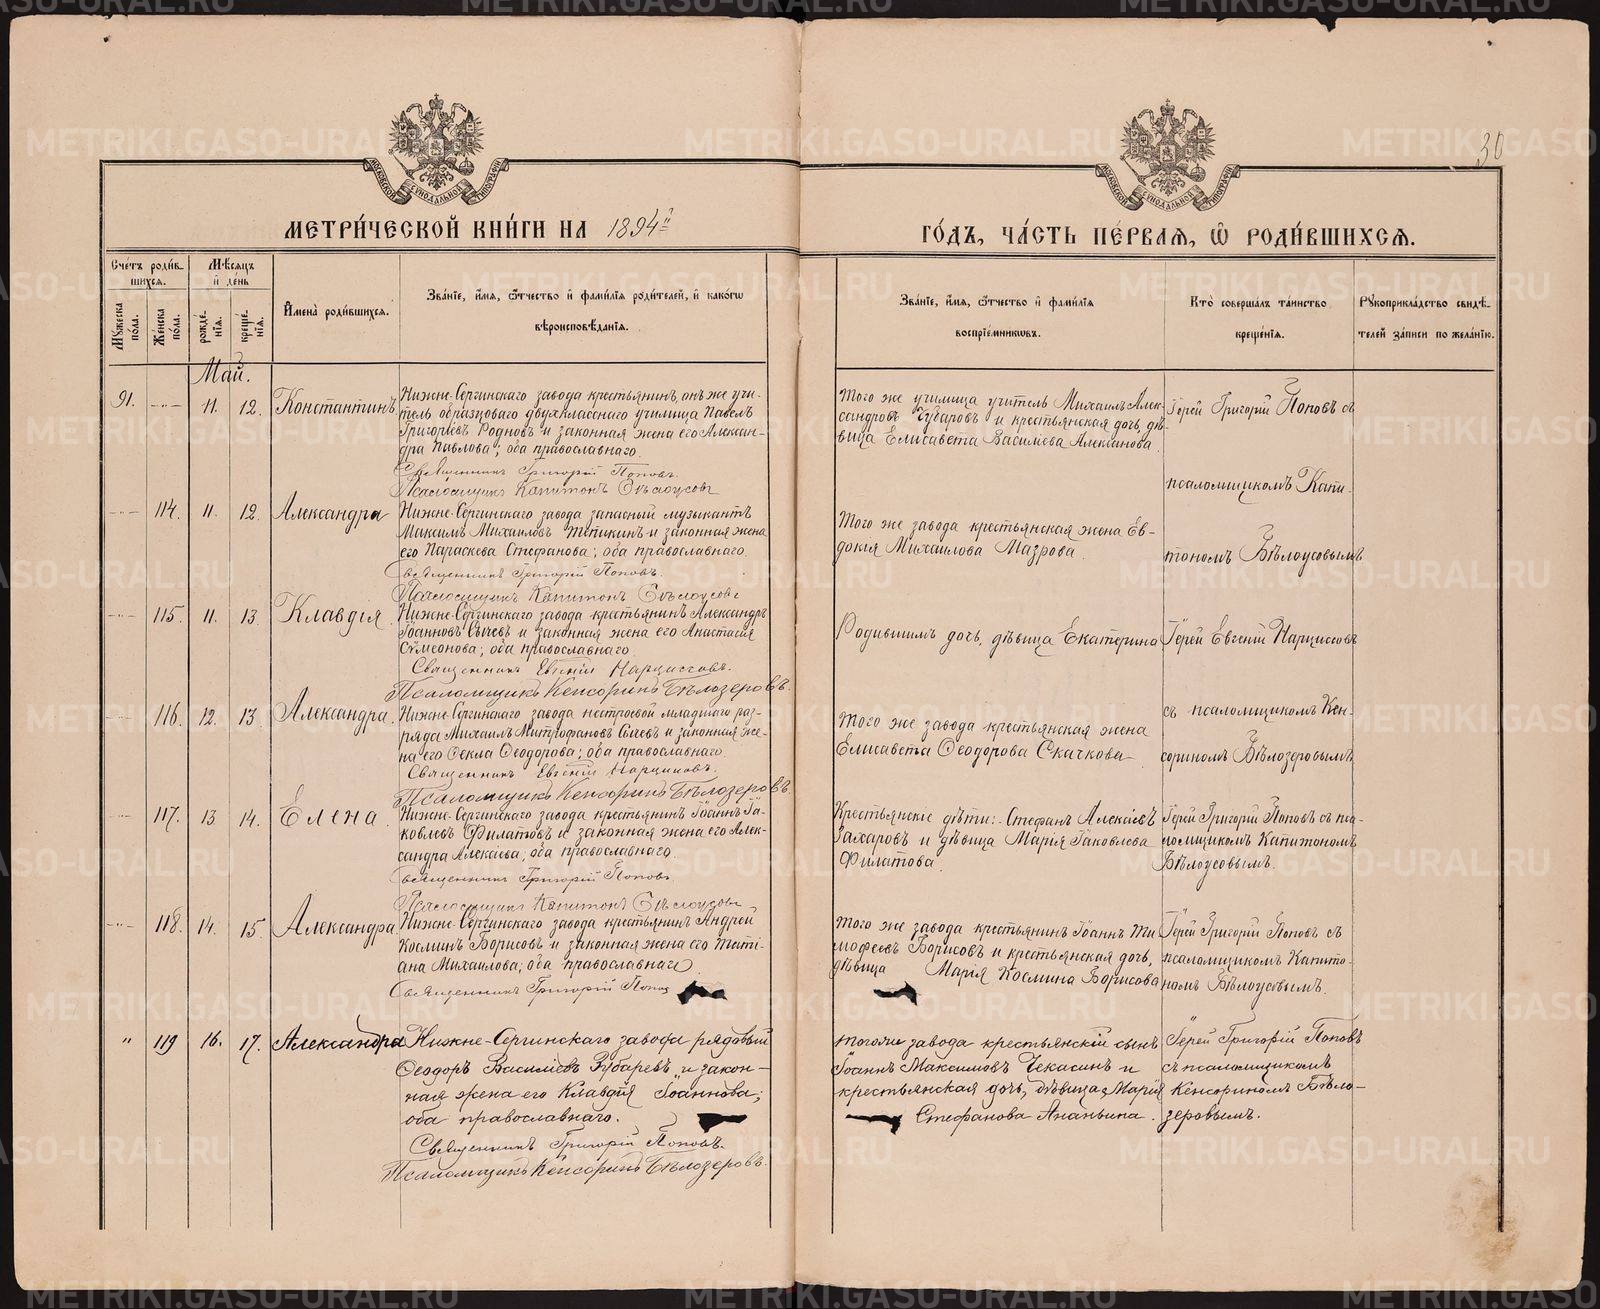 30
МОСКОВСКОЙ СѴНОДАЛЬНОЙ ТИПОГРАФІИ
МОСКОВСКОЙ СѴНОДАЛЬНОЙ ТИПОГРАФІИ
МЕТРИ́ЧЕСКОЙ КНИ́ГИ НА 1894й
ГО́ДЪ, ЧА́СТЬ ПЕ́РВАЯ, Ѡ҆ РОДИ́ВШИХСЯ.
Сче́тъ роди́в-
шихся.
Мꙋ́жеска по́ла.
Же́нска по́ла.
Мѣ́сяцъ
и҆ де́нь
рожде́-
нія.
креще́-
нія.
И҆мена̀ роди́вшихся.
Зва́ніе, и҆́мя, ѻ҆́тчество и҆ фами́лія роди́телей, и҆ како́гѡ
вѣроисповѣ́данія.
Зва́ніе, и҆́мя, ѻ҆́тчество и҆ фами́лія
воспріе́мниковъ.
Кто̀ соверша́лъ та́инство
креще́нія.
Рꙋкоприкла́дство свидѣ́-
телей за́писи по жела́нію.
Май.
91. 11. 12. Константинъ
Нижне-Сергинскаго завода крестьянинъ, онъ же учи-
тель образцоваго двухкласснаго училища Павелъ
Григорьевъ Родновъ и законная жена его Алексан-
дра Павлова; оба православнаго.
Священникъ Григорій Поповъ.
Псаломщикъ Капитонъ Бѣлоусовъ
Того же училища учитель Михаилъ Алек-
сандровъ Чубаровъ и крестьянская дочь, дѣ-
вица Елисавета Васильева Алексанова
Іерей Григорій Поповъ съ
псаломщикомъ Капи-
114. 11. 12. Александра
Нижне-Сергинскаго завода запасный музыкантъ
Максимъ Михаиловъ Тетикинъ и законная жена
его Параскева Стефанова; оба православнаго.
Священникъ Григорій Поповъ.
Псаломщикъ Капитонъ Бѣлоусовъ
Того же завода крестьянская жена Ев-
докія Михаилова Мазрова.
тономъ Бѣлоусовымъ
115. 11. 13. Клавдія.
Нижне-Сергинскаго завода крестьянинъ Александръ
Іоанновъ Сычевъ и законная жена его Анастасія
Сѵмеонова; оба православнаго.
Священникъ Евгеній Нарциссовъ.
Псаломщикъ Кенсоринъ Бѣлозеровъ.
Родившимъ дочь, дѣвица Екатерина
Іерей Евгеній Нарциссовъ
116. 12. 13. Александра.
Нижне-Сергинскаго завода нестроевой младшаго раз-
ряда Михаилъ Митрофановъ Сычевъ и законная же-
на его Ѳекла Ѳеодорова; оба православнаго.
Священникъ Евгеній Нарциссовъ.
Псаломщикъ Кенсоринъ Бѣлозеровъ.
Того же завода крестьянская жена
Елисавета Ѳеодорова Скачкова
съ псаломщикомъ Кен-
сориномъ Бѣлозеровымъ
117. 13 14. Елена
Нижне-Сергинскаго завода крестьянинъ Іоаннъ Іа-
ковлевъ Филатовъ и законная жена его Алек-
сандра Алексіева; оба православнаго.
Священникъ Григорій Поповъ
Псаломщикъ Капитонъ Бѣлоусовъ
Крестьянскіе дѣти: Стефанъ Алексіевъ
Захаровъ и дѣвица Марія Іаковлева
Филатова
Іерей Григорій Поповъ съ пса-
ломщикомъ Капитономъ
Бѣлоусовымъ.
118. 14. 15. Александра
Нижне-Сергинскаго завода крестьянинъ Андрей
Космин Борисовъ и законная жена его Тати-
ана Михаилова; оба православнаго
Священникъ Григорій Попов
Того же завода крестьянинъ Іоаннъ Ти-
мофеевъ Борисовъ и крестьянская дочь,
дѣвица Марія Космина Борисова
Іерей Григорій Поповъ съ
псаломщикомъ Капито-
номъ Бѣлоусовымъ.
" 119 16. 17. Александра
Нижне-Сергинскаго завода рядовый
Ѳеодоръ Василіевъ Зубаревъ и закон-
ная жена его Клавдія Іоаннова;
оба православнаго.
Священникъ Григорій Поповъ.
Псаломщикъ Кенсоринъ Бѣлозеровъ.
того же завода крестьянскій сынъ
Іоаннъ Максимовъ Чекасинъ и
крестьянская дочь, дѣвица Марія
Стефанова Ананьина.
Іерей Григорій Поповъ
съ псаломщикомъ
Кенсориномъ Бѣло-
зеровымъ.
METRIKI.GASO-URAL.RU